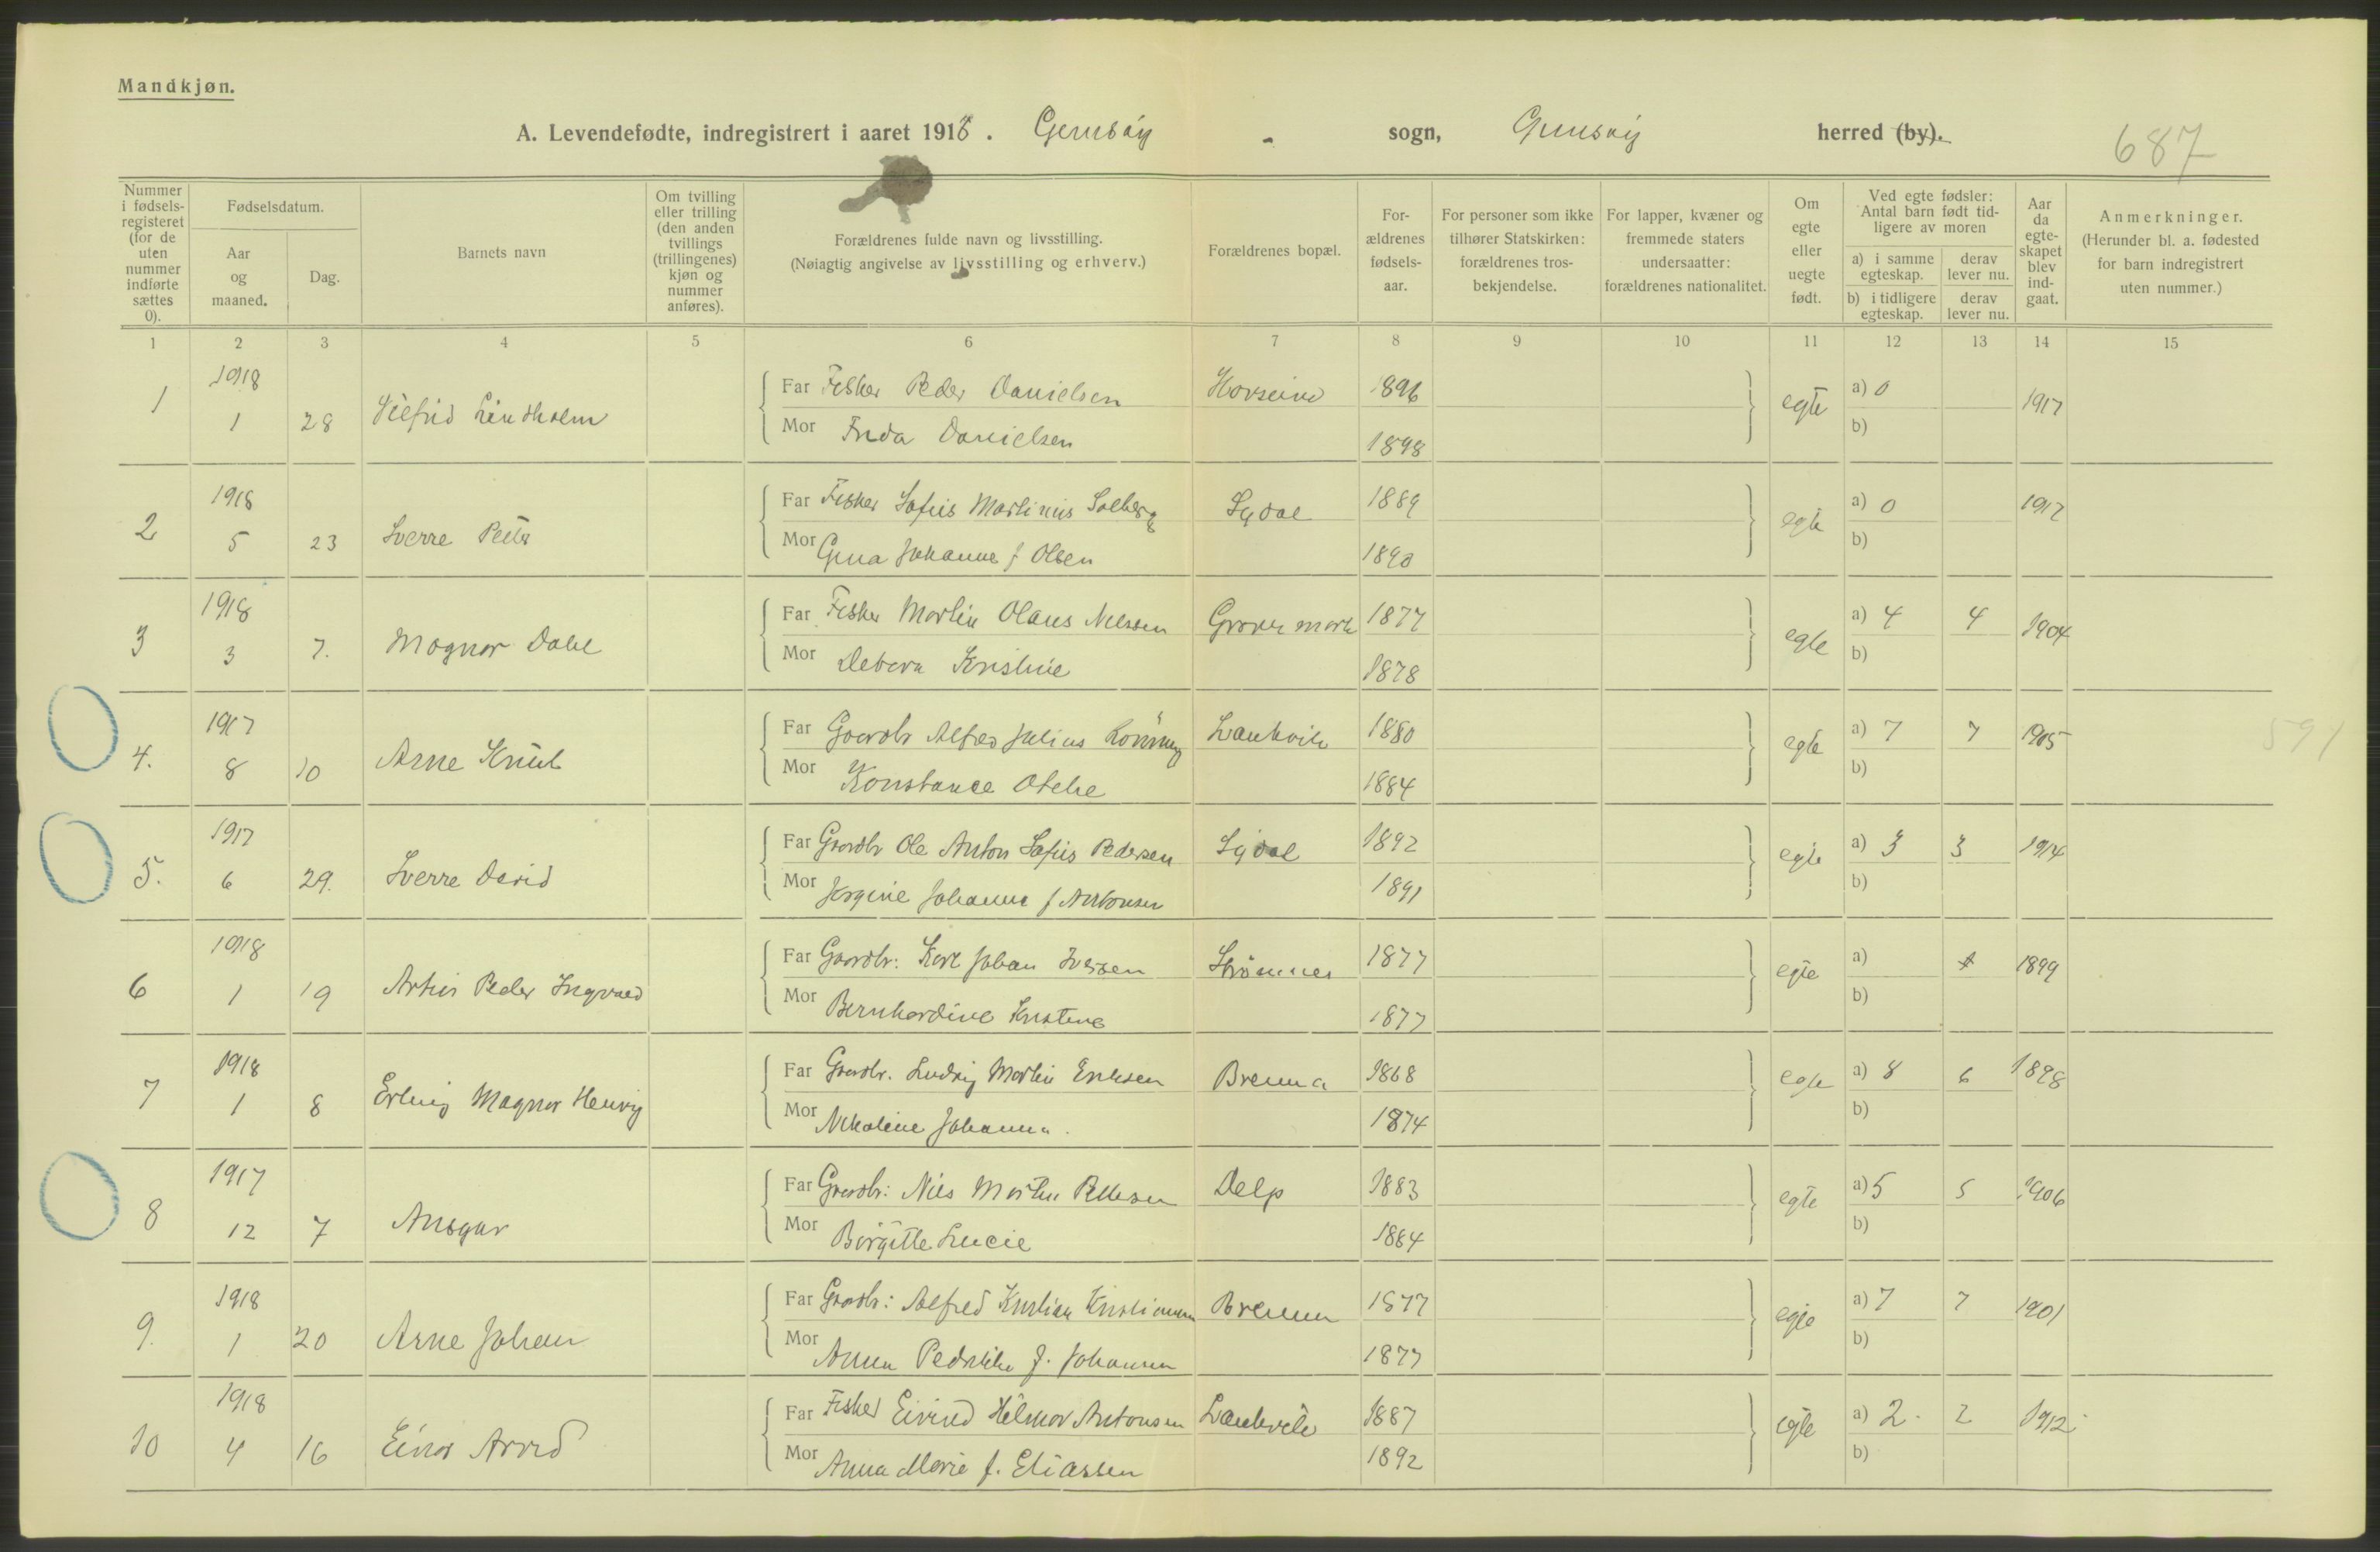 Mandkjøn.
A. Levendefødte, indregistrert i aaret 1918. Gimsøy - sogn, Gimsøy herred (by).
687
Nummer i fødselsregisteret (for de uten nummer indførte sættes 0).
Fødselsdatum.
Aar og maaned.
Dag.
Barnets navn
Om tvilling eller trilling (den anden tvillings (trillingenes) kjøn og nummer anføres).
Forældrenes fulde navn og livsstilling.
(Nøiagtig angivelse av livsstilling og erhverv.)
Forældrenes bopæl.
Forældrenes fødselsaar.
For personer som ikke tilhører Statskirken: forældrenes trosbekjendelse.
For lapper, kvæner og fremmede staters undersaatter: forældrenes nationalitet.
Om egte eller uegte født.
Ved egte fødsler: Antal barn født tidligere av moren
a) i samme egteskap. derav lever nu.
b) i tidligere egteskap. derav lever nu.
Aar da egteskapet blev indgaat.
Anmerkninger.
(Herunder bl. a. fødested for barn indregistrert uten nummer.)
1 2 3 4 5 6 7 8 9 10 11 12 13 14 15
1 1918 1 28 Vilfrid Lindholm Far Fisker Peder Danielsen 1896 egte a) 0 1917
Mor Frida Danielsen 1898 b)
2 1918 5 23 Sverre Peter Far Fisker Sofus Martinus Solberg Sydal 1889 egte a) 0 1917
Mor Gina Johanne f Olsen 1890 b)
3 1918 3 7. Magnar Dahl Far Fisker Martin Olaus Nilssen 1877 egte a) 4 4 1904
Mor Debora Kristine 1878 b)
4. 1917 8 10 Arne Knut Far Gaardbr Alfred Julius Lönning Laukvik 1880 egte a) 7 7 1905
Mor Konstance Otelie 1884 b)
591
5. 1917 6 29. Sverre David Far Gaardbr Ole Anton Sofus Pedersen Sydal 1892 egte a) 3 3 1914
Mor Jørgine Johanna f Antonsen 1891 b)
6 1918 1 19 Peder Ingvald Far Gaardbr: Karl Johan Iversen Strømnes 1877 egte a) 1899
Mor Bernhardine Kristine 1877 b)
7 1918 1 8 Erling Magnor Henry Far Gaardbr. Ludvig Martin Eriksen Brenna 1868 egte a) 8 6 1898
Mor Nikoline Johanna. 1874 b)
8 1917 12 7 Ansgar Far Gaardbr: Nils Martin Pettersen Delp 1883 egte a) 5 5 1906
Mor Birgitte Lucie 1884 b)
9. 1918 1 20 Arne Johan Far Gaardbr: Alfred Kristian Kristiansen Brenna 1877 egte a) 7 7 1901
Mor Anna Pedrikke f. Johansen 1877 b)
10 1918 4 16 Einar Arvid Far Fisker Eivind Hilmar Antonsen Laukvik 1887 egte a) 2. 2 1912
Mor Anna Marie f. Eliassen 1892 b)